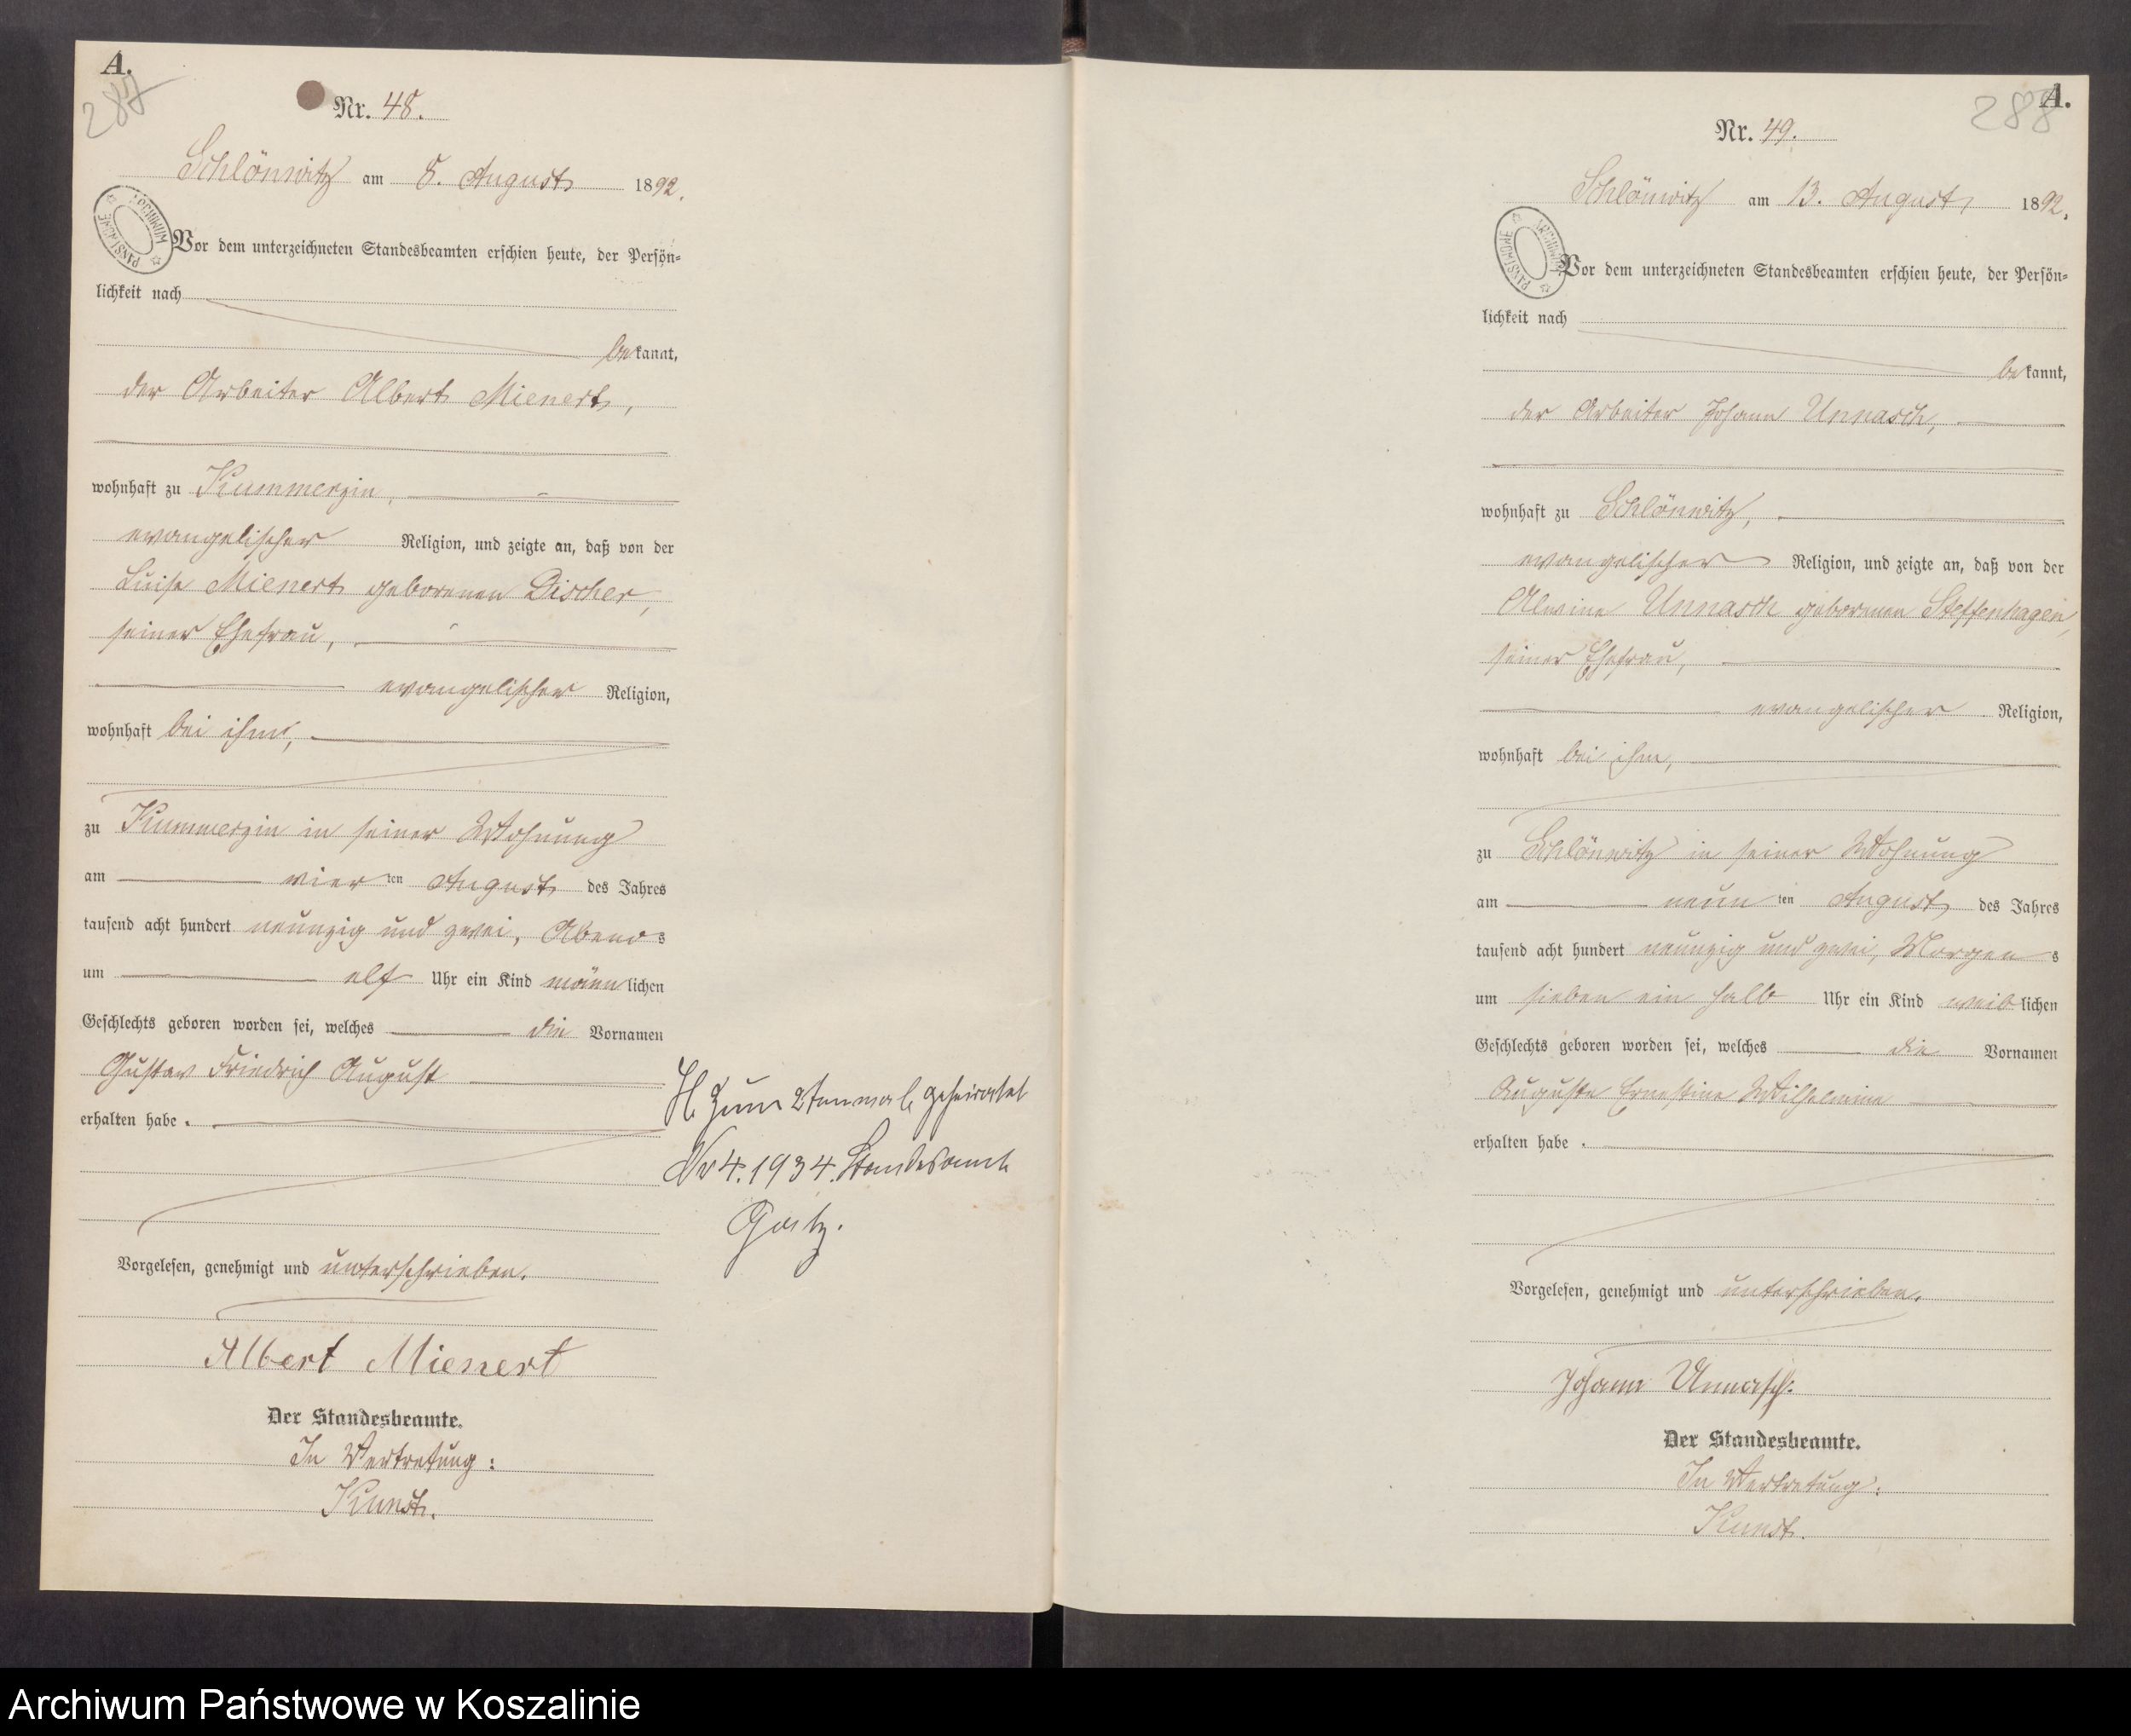 A.
287
Nr. 48.
Schlönwitz am 8. August 1892.
Vor dem unterzeichneten Standesbeamten erschien heute, der Persön-
lichkeit nach
bekannt,
der Arbeiter Albert Mienert,
wohnhaft zu Kummerzin,
evangelischer Religion, und zeigte an, daß von der
Luise Mienert geborenen Discher,
seiner Ehefrau,
evangelischer Religion,
wohnhaft bei ihm,
zu Kummerzin in seiner Wohnung
am vier ten August des Jahres
tausend acht hundert neunzig und zwei, Abends
um elf Uhr ein Kind männlichen
Geschlechts geboren worden sei, welches die Vornamen
Gustav Friedrich August
erhalten habe.
H. Zum 2tenmal geheiratet
Nr 4. 1934. Standesamt
Vorgelesen, genehmigt und unterschrieben.
Albert Mienert
Der Standesbeamte.
In Vertretung:
Kunst.
A.
288
Nr. 49.
Schlönwitz am 13. August 1892.
Vor dem unterzeichneten Standesbeamten erschien heute, der Persön-
lichkeit nach
bekannt,
der Arbeiter Johann Unnasch,
wohnhaft zu Schlönwitz,
evangelischer Religion, und zeigte an, daß von der
Alwine Unnasch geborenen Steffenhagen,
seiner Ehefrau,
evangelischer Religion,
wohnhaft bei ihm,
zu Schlönwitz in seiner Wohnung
am neun ten August des Jahres
tausend acht hundert neunzig und zwei, Morgens
um sieben ein halb Uhr ein Kind weiblichen
Geschlechts geboren worden sei, welches die Vornamen
Auguste Ernestine Wilhelmine
erhalten habe.
Vorgelesen, genehmigt und unterschrieben.
Johann Unnasch.
Der Standesbeamte.
In Vertretung:
Kunst.
Archiwum Państwowe w Koszalinie